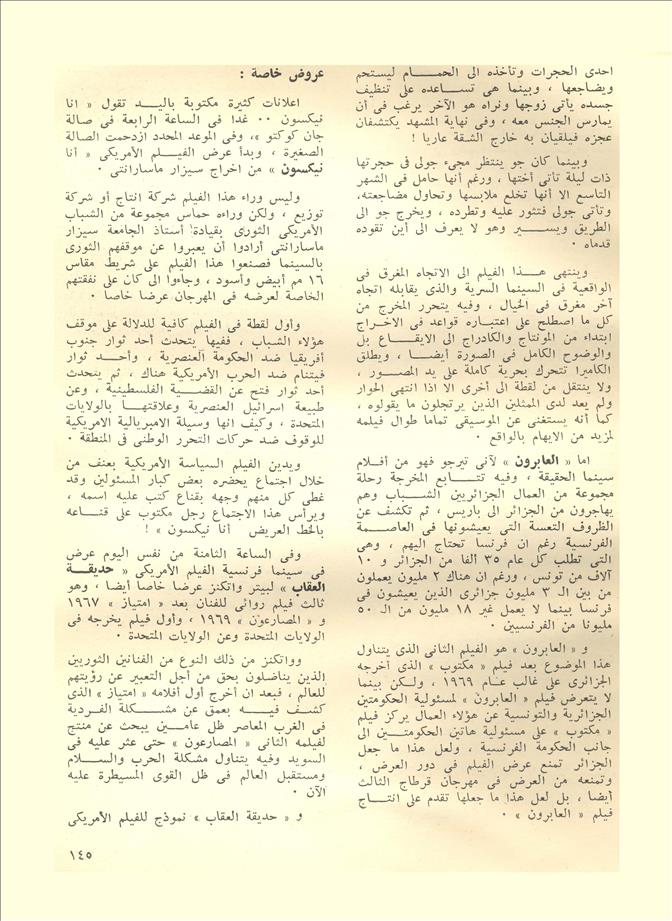 احدى الحجرات وتأخذه الى الحمـــام ليستحم
ويضاجعها ، وبينما هى تســاعده على تنظيف
جسده يأتى زوجها ونراه هو الآخر يرغب فى أن
يمارس الجنس معه ، وفى نهاية المشهد يكتشفان
عجزه فيلقيان به خارج الشقة عاريا !
وبينما كان جو ينتظر مجىء جولى فى حجرتها
ذات ليلة تأتى أختها ، ورغم أنها حامل فى الشهر
التاسع الا أنها تخلع ملابسها وتحاول مضاجعته،
وتأتى جولى فتثور عليه وتطرده ، ويخرج جو الى
الطريق ويســـير وهو لا يعرف الى أين تقوده
قدماه ٠
وينتهى هـــذا الفيلم الى الاتجاه المغرق فى
الواقعية فى السينما السرية والذى يقابله اتجاه
آخر مغرق فى الخيال ، وفيه يتحرر المخرج من
كل ما اصطلح على اعتبــاره قواعد فى الاخــراج
ابتداء من المونتاج والكادراج الى الايقــاع بل
والوضوح الكامل فى الصورة أيضــا ، ويطلق
الكاميرا تتحرك بحرية كاملة على يد المصــور ،
ولا ينتقل من لقطة الى أخرى الا اذا انتهى الحوار
ولم يعد لدى الممثلين الذين يرتجلون ما يقولوه ،
كما أنه يستغنى عن الموسيقى تماما طوال فيلمه
لمزيد من الايهام بالواقع ٠
اما « العابرون » لآنى تيرجو فهو من أفــلام
سينما الحقيقة ، وفيه تتـــابع المخرجة رحلة
مجموعة من العمال الجزائريين الشــباب وهم
يهاجرون من الجزائر الى باريس ، ثم تكشف عن
الظروف التعسة التى يعيشونها فى العاصـــمة
الفرنسية رغم ان فرنسا تحتاج اليهم ، وهى
التى تطلب كل عام ٣٥ ألفا من الجزائر و ١٠
آلاف من تونس ، ورغم ان هناك ٢ مليون يعملون
من بين الـ ٣ مليون جزائرى الذين يعيشون فى
فرنسا بينما لا يعمل غير ١٨ مليون من الـ ٥٠
مليونا من الفرنسيين ٠
و « العابرون » هو الفيلم الثانى الذى يتناول
هذا الموضوع بعد فيلم « مكتوب » الذى أخرجه
الجزائرى على غالب عــام ١٩٦٩ ، ولـكن بينما
لا يتعرض فيلم « العابرون » لمسئولية الحكومتين
الجزائرية والتونسية عن هؤلاء العمال يركز فيلم
« مكتوب » على مسئولية هاتين الحكومتــين الى
جانب الحكومة الفرنسية ، ولعل هذا ما جعل
الجزائر تمنع عرض الفيلم فى دور العرض ،
وتمنعه من العرض فى مهرجان قرطاج الثالث
أيضا ، بل لعل هذا ما جعلها تقدم على انتـــاج
فيلم « العابرون » ٠
عروض خاصة :
اعلانات كثيرة مكتوبة باليــد تقول « انا
نيكسون ٠٠ غدا فى الساعة الرابعة فى صالة
جان كوكتو »، وفى الموعد المحدد ازدحمت الصالة
الصغيرة ، وبدأ عرض الفيــلم الأمريكى « أنا
نيكسون » من اخراج سيزار ماسارانتى ٠
وليس وراء هذا الفيلم شركة انتاج أو شركة
توزيع ، ولكن وراءه حماس مجموعة من الشباب
الأمريكى الثورى بقيادة أستاذ الجامعة سيزار
ماسارانتى أرادوا أن يعبروا عن موقفهم الثورى
بالسينما فصنعوا هذا الفيلم على شريط مقاس
١٦ مم أبيض وأسود ، وجاءوا الى كان على نفقتهم
الخاصة لعرضه فى المهرجان عرضا خاصا ٠
وأول لقطة فى الفيلم كافية للدلالة على موقف
هؤلاء الشباب ، ففيها يتحدث أحد ثوار جنوب
أفريقيا ضد الحكومة العنصرية ، وأحــد ثوار
فيتنام ضد الحرب الأمريكية هناك ، ثم يتحدث
أحد ثوار فتح عن القضــية الفلسطينية ، وعن
طبيعة اسرائيل العنصرية وعلاقتهــا بالولايات
المتحدة ، وكيف انها وسيلة الامبريالية الامريكية
للوقوف ضد حركات التحرر الوطنى فى المنطقة ٠
ويدين الفيلم السياسة الأمريكية بعنف من
خلال اجتماع يحضره بعض كبار المسئولين وقد
غطى كل منهم وجهه بقناع كتب عليه اسمه ،
ويرأس هذا الاجتماع رجل مكتوب على قنــاعه
بالخط العريض أنا نيكسون » !
وفى الساعة الثامنة من نفس اليوم عرض
فى سينما فرنسية الفيلم الأمريكى « حديقـــة
العقاب » لبيتر واتكنز عرضا خاصا أيضا ، وهو
ثالث فيلم روائى للفنان بعد « امتياز » ١٩٦٧
و « المصارعون » ١٩٦٩ ، وأول فيلم يخرجه فى
الولايات المتحدة وعن الولايات المتحدة ٠
وواتكنز من ذلك النوع من الفنانين الثوريين
الذين يناضلون بحق من أجل التعبير عن رؤيتهم
للعالم ، فبعد ان أخرج أول أفلامه « امتياز » الذى
كشــف فيـــه بعمق عن مشــكلة الفـردية
فى الغرب المعاصر ظل عامــين يبحث عن منتج
لفيلمه الثانى « المصارعون » حتى عثر عليه فى
السويد وفيه يتناول مشكلة الحرب والســلام
ومستقبل العالم فى ظل القوى المسيطرة عليه
الآن ٠
و « حديقة العقاب » نموذج للفيلم الأمريكى
١٤٥